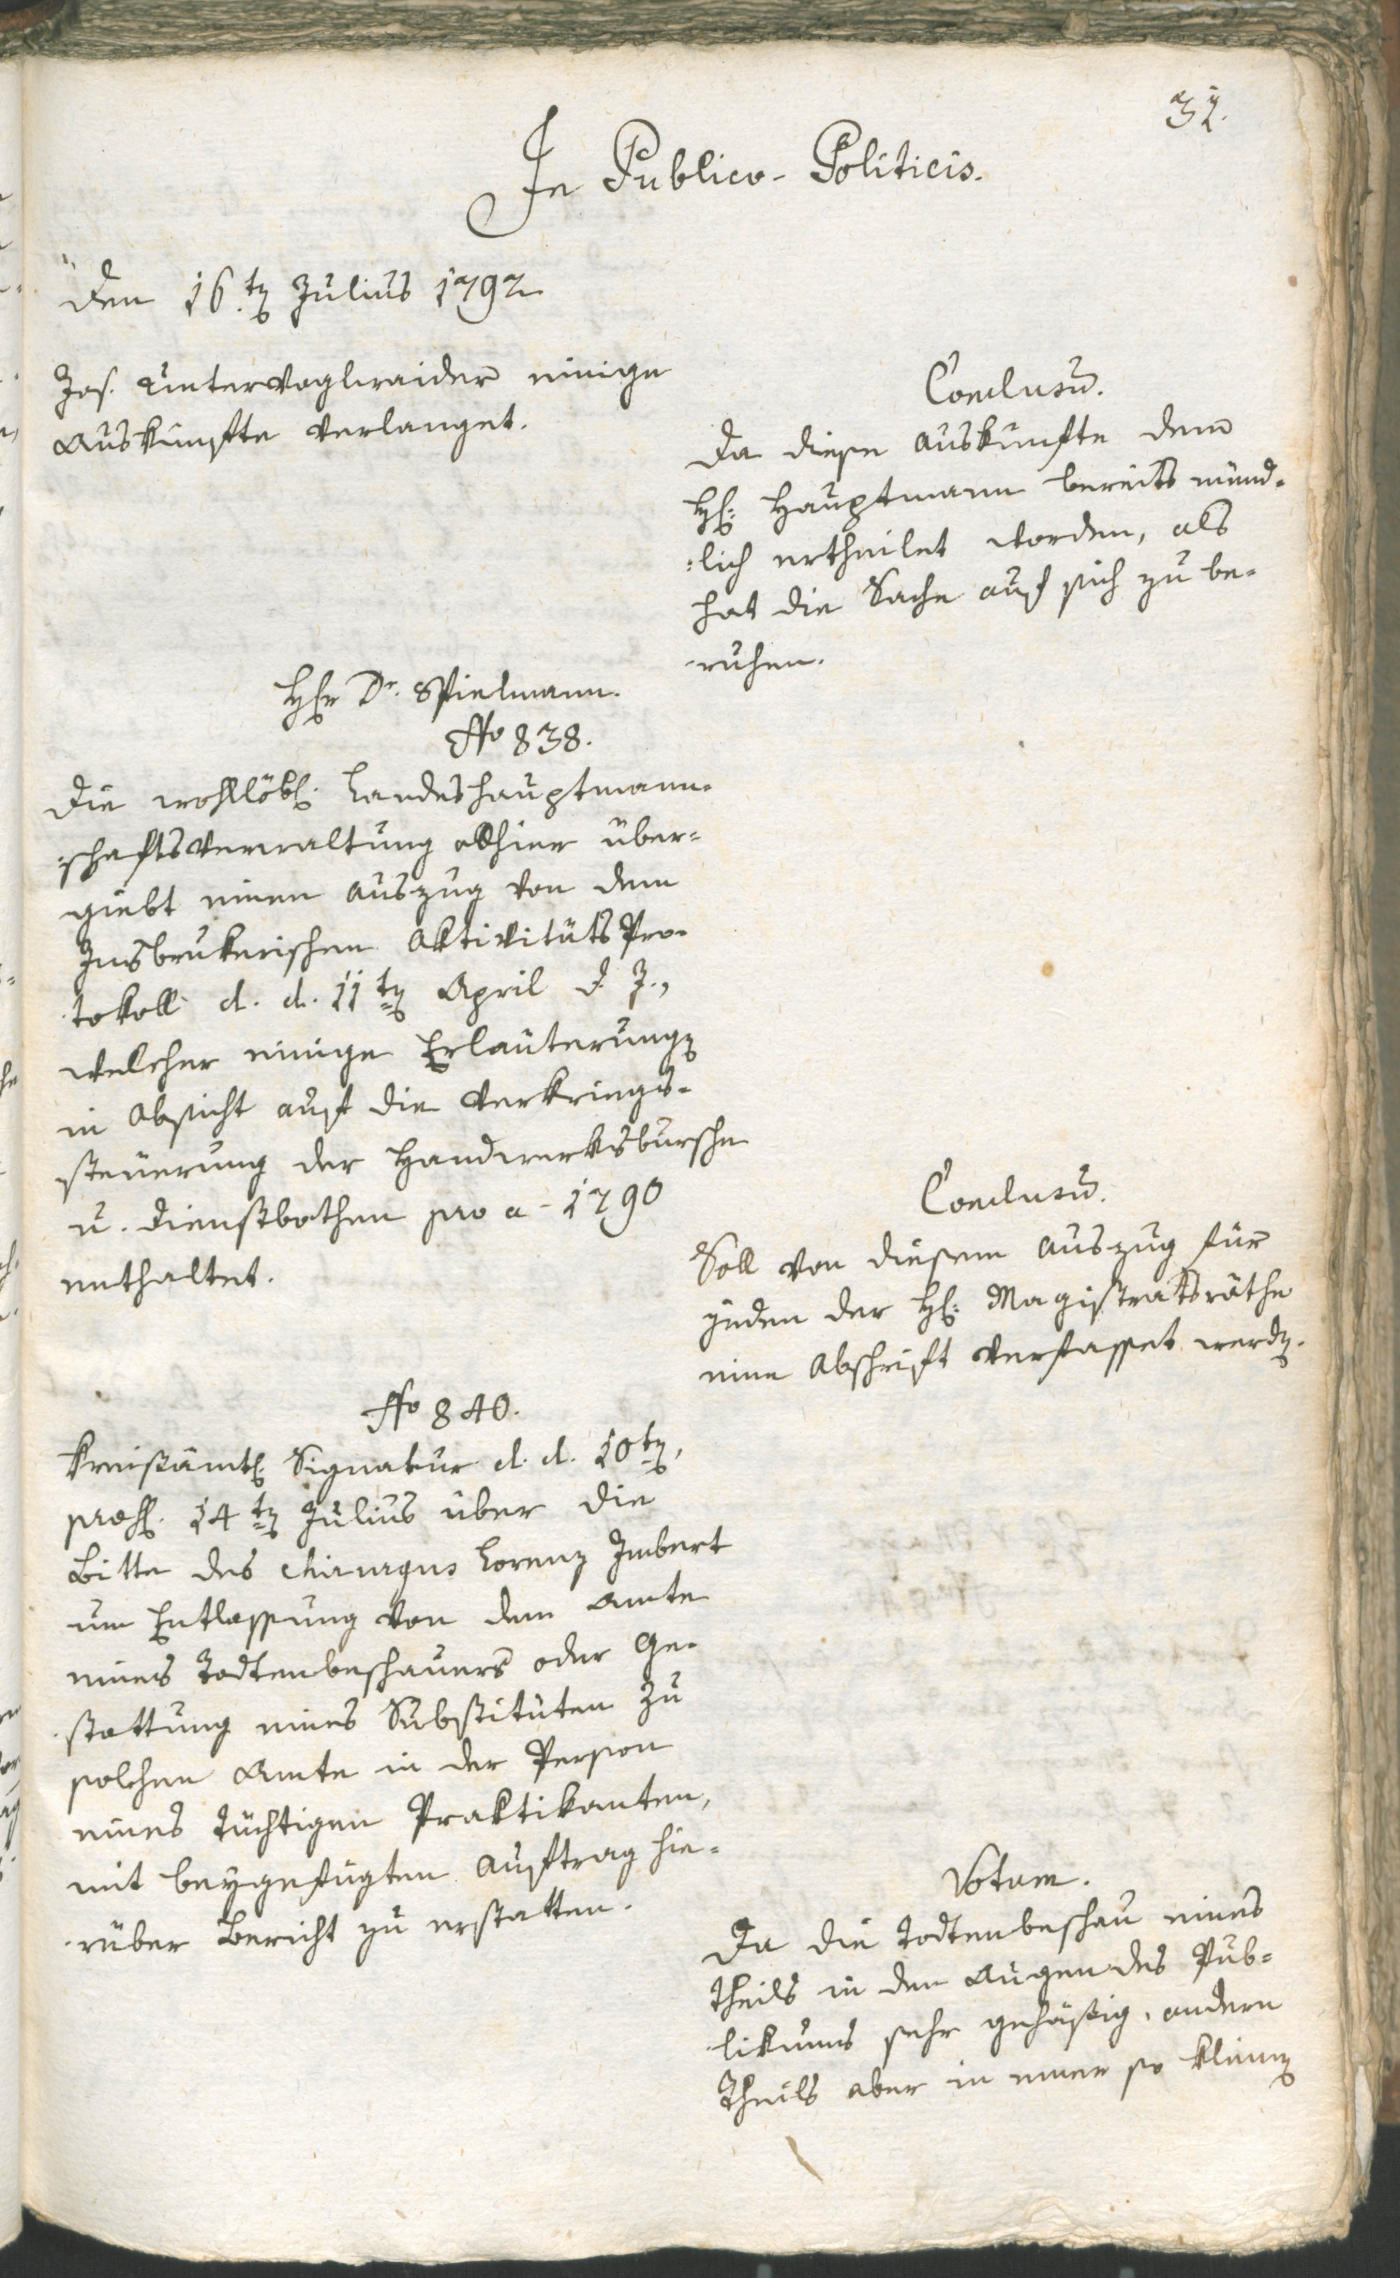 31.
In Publico-Politicis.
Den 16.ten Julius 1792
Jos. Untervoglraider einige
Auskünfte verlanget.
Conclusum.
Da diese Auskünfte dem
H: Hauptmann bereits münd-
lich ertheilet worden, als
hat die Sache auf sich zu be-
ruhen.
Herr Dr. Spielmann.
No 838.
Die wohllöbl: Landeshauptmann-
schaftsverwaltung allhier über-
giebt einen Auszug von dem
Insbrukerischen Aktivitäts Pro-
tokoll d. d. 11ten April d. J.,
welcher einige Erläuterungen
in Absicht auf die Verkriegs-
steuerung der Handwerksbursche
u. Dienstbothen pro a- 1790
enthaltet.
Conclusum.
Soll von diesem Auszug für
jeden der H: Magistratsräthe
eine Abschrift verfasset werden.
No 840.
Kreisämtl: Signatur d. d. 10ten,
præs: 14ten Julius über die
Bitte des chirurgus Lorenz Imbert
um Entlassung von dem Amte
eines Todtenbeschauers oder Ge-
stattung eines Substituten zu
solchem Amte in der Person
eines tüchtigen Praktikanten,
mit beygefügten Auftrag hie-
rüber Bericht zu erstatten.
Votum.
Da die Todtenbeschau eines
Theils in den Augen des Pub-
likums sehr gehäßig, andern
Theils aber in einer so kleinen